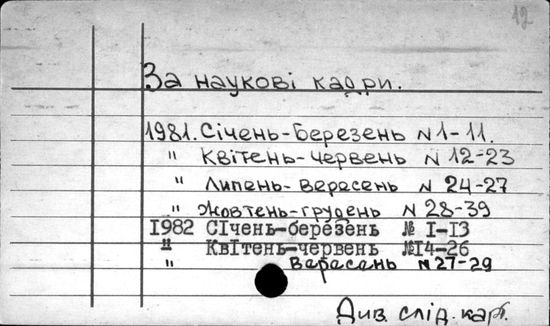 12
За наукові кадри.
1981. Січень-Березень N 1-11.
" Квітень-червень N 12-23
" Липень-вересень N 24-27
" Жовтень-грудень N 28-39
1982 Січень-березень № I-I3
" Квітень-червень №I4-26
" Вересень N 27-29
Див. слід. карт.